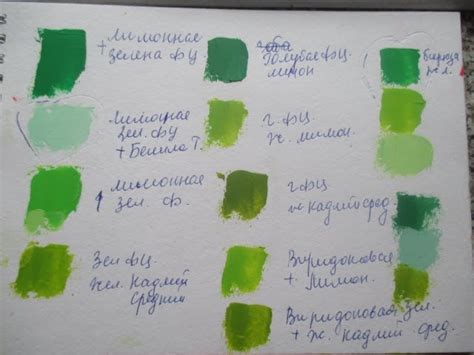 + Лимонная
зелена фц
Лимонная
зел. фц
+ Белила Т.
Лимонная
зел. ф.
Зел фц.
жел. Кадмий
Средний
голубая фц.
лимон
г. фц.
ж. лимон.
г фц
ж кадмий сред.
Виридоновая
+ лимон.
Виридоновая зел.
+ ж. кадмий сред.
бирюза
жел.